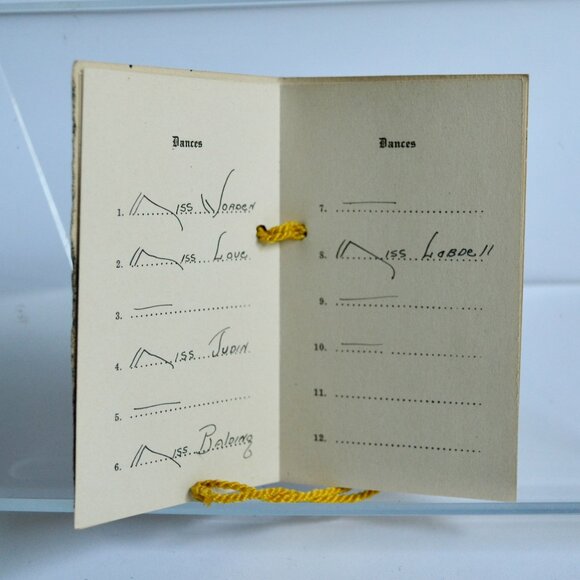 Dances
1. Miss Worden
2. Miss Love
3.
4. Miss Judin
5.
6. Miss
Dances
7.
8. Miss Lobdell
9.
10.
11.
12.